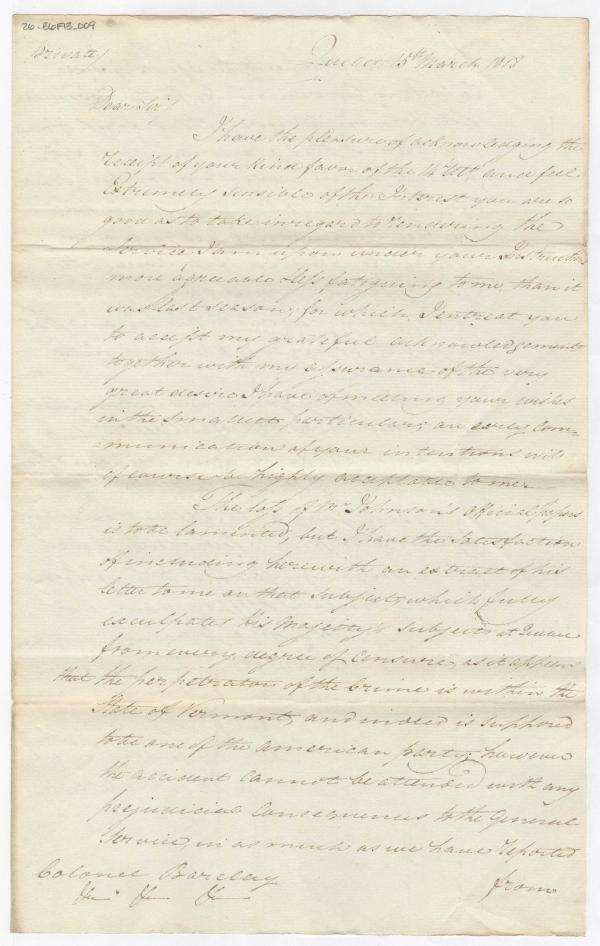 26-E6F13_009
Private/
Quebec 15th March 1818
Dear Sir!
I have the pleasure of acknowledging the
receipt of your kind favor of the 14 Ult and feel
Extremely sensible of the Interest you are so
good as to take in regard to rendering the
Service I am upon under your Instruction
more agreeable & less fatiguing to me, than it
was last season, for which I entreat you
to accept my grateful acknowledgements
together with my assurance of the very
great desire I have of meeting your wishes
in the smallest particular; an early com-
=munication of your intentions will
of course be highly acceptable to me.
The loss of Mr Johnson's official papers
is to be lamented, but I have the satisfaction
of including herewith an extract of his
letter to me on that subject, which fully
exculpates His Majesty's subjects at
from every degree of Censure, as it appears
that the perpetrator of the Crime is within the
State of Vermont, and indeed is supposed
to be one of the american party; however
the accident cannot be attended with any
prejudicial Consequences to the General
Service, in as much as we have reported
Colonel Barclay
from
&c &c &c